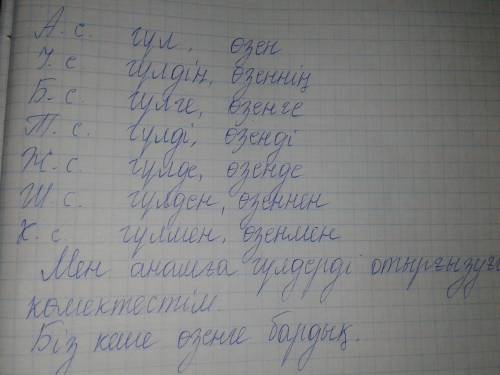 А. с. гүл, өзен
І. с. гүлдің, өзеннің
Б. с. гүлге, өзенге
Т. с. гүлді, өзенді
Ж. с. гүлде, өзенде
Ш с. гүлден, өзеннен
К. с гүлмен, өзенмен
Мен анашға гүлдерді отырғызуға
көмектестім.
Біз кеше өзенге бардық.